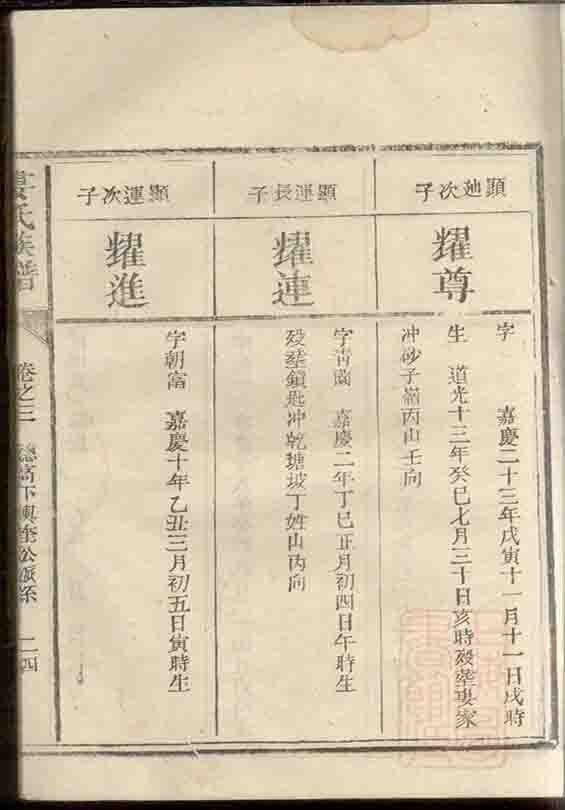 顯迆次子
耀尊
字　嘉慶二十三年戊寅十一月十一日戌時
生　道光十三年癸巳七月三十日亥時殁塟婁家
冲砂子嶺丙山壬向
顯運長子
耀連
字青蘭　嘉慶二年丁巳正月初四日午時生
殁塟鎖匙冲乾塘坡丁姓山丙向
顯運次子
耀進
字朝富　嘉慶十年乙丑三月初五日寅時生
婁氏族譜
卷之三
下興奎公派系
二四